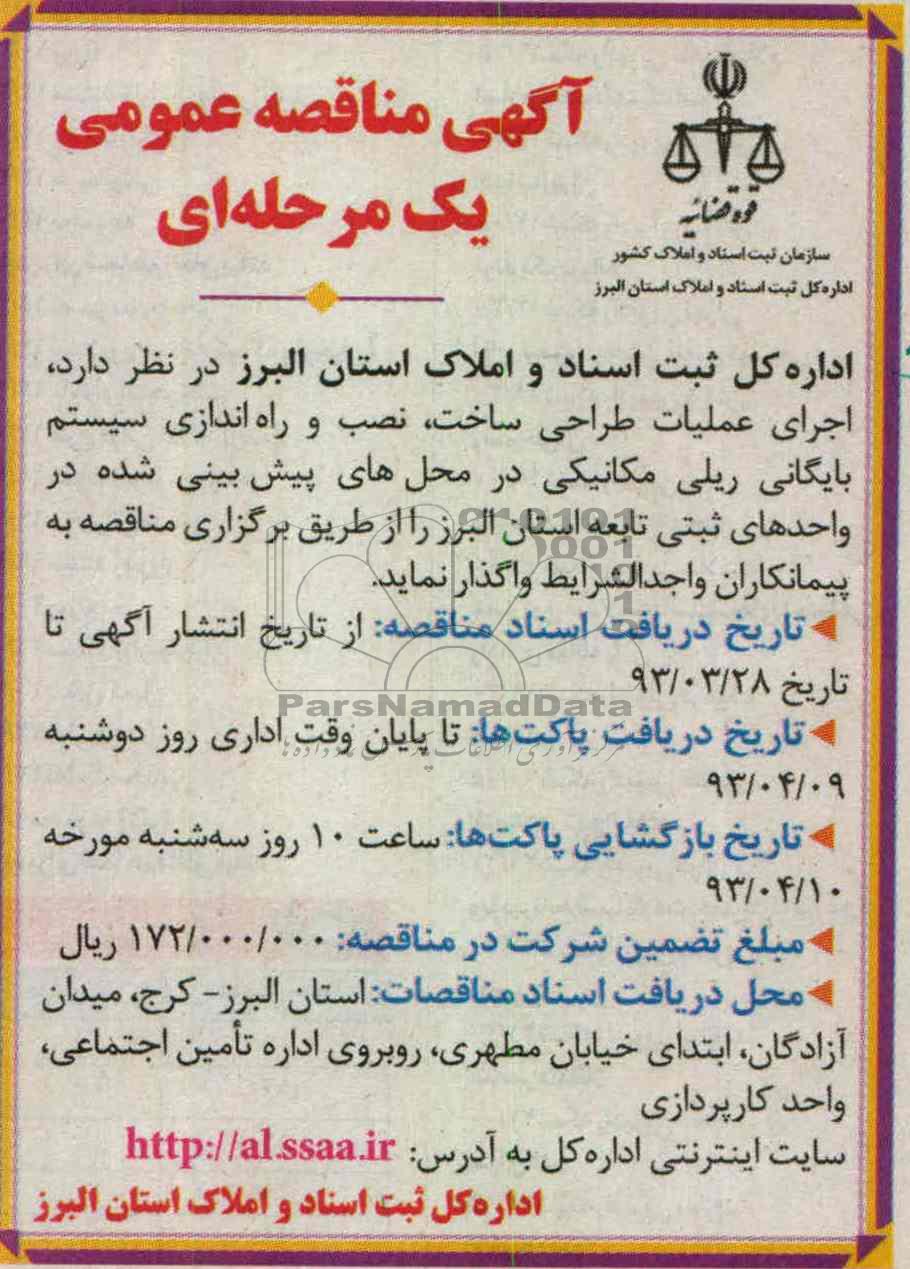 آگهی مناقصه عمومی
یک مرحله‌ای
قوه قضائیه
سازمان ثبت اسناد و املاک کشور
اداره‌کل ثبت اسناد و املاک استان البرز
اداره کل ثبت اسناد و املاک استان البرز در نظر دارد،
اجرای عملیات طراحی ساخت، نصب و راه اندازی سیستم
بایگانی ریلی مکانیکی در محل های پیش بینی شده در
واحدهای ثبتی تابعه استان البرز را از طریق برگزاری مناقصه به
پیمانکاران واجدالشرایط واگذار نماید.
تاریخ دریافت اسناد مناقصه: از تاریخ انتشار آگهی تا
تاریخ ۹۳/۰۳/۲۸
ParsNamadData
تاریخ دریافت پاکت‌ها: تا پایان وقت اداری روز دوشنبه
۹۳/۰۴/۰۹
تاریخ بازگشایی پاکت‌ها: ساعت ۱۰ روز سه‌شنبه مورخه
۹۳/۰۴/۱۰
مبلغ تضمین شرکت در مناقصه: ۱۷۲/۰۰۰/۰۰۰ ریال
محل دریافت اسناد مناقصات: استان البرز- کرج، میدان
آزادگان، ابتدای خیابان مطهری، روبروی اداره تأمین اجتماعی،
واحد کارپردازی
سایت اینترنتی اداره‌کل به آدرس: http://al.ssaa.ir
اداره‌کل ثبت اسناد و املاک استان البرز